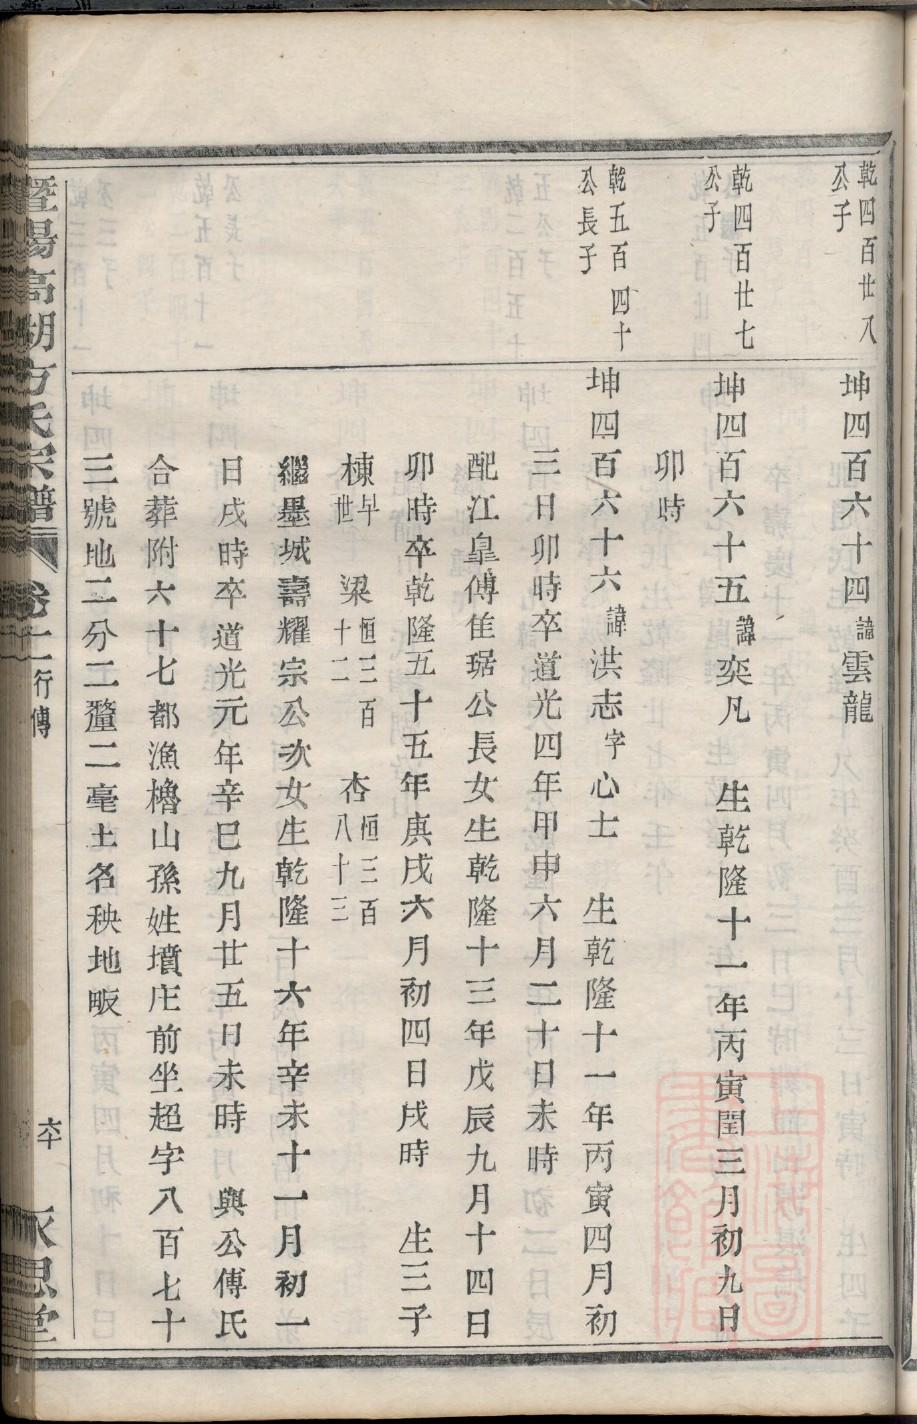 乾四百廿八
公子
坤四百六十四諱雲龍
乾四百廿七
公子
坤四百六十五諱奕凡 生乾隆十一年丙寅閏三月初九日
卯時
乾五百四十
公長子
坤四百六十六諱洪志字心士 生乾隆十一年丙寅四月初
三日卯時卒道光四年甲申六月二十日未時
配江皐傅隹琚公長女生乾隆十三年戊辰九月十四日
卯時卒乾隆五十五年庚戌六月初四日戌時 生三子
棟早世 梁恒三百十二 杏恒三百八十三
繼墨城壽耀宗公次女生乾隆十六年辛未十一月初一
日戌時卒道光元年辛巳九月廿五日未時 與公傅氏
合葬附六十七都漁櫓山孫姓墳庄前坐超字八百七十
三號地二分二釐二毫土名秧地畈
暨陽高湖方氏宗譜 卷 行傳 永思堂